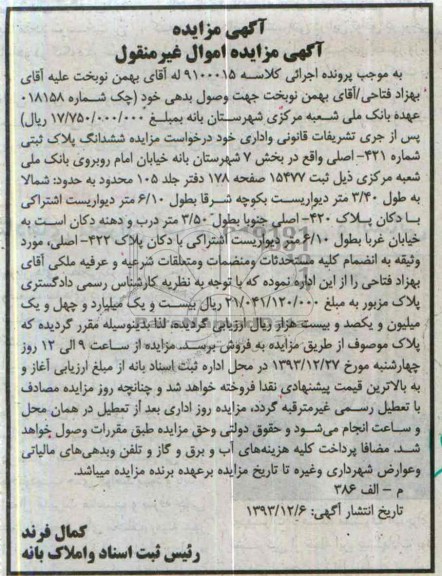 آگهی مزایده
آگهی مزایده اموال غیرمنقول
به موجب پرونده اجرائی کلاسه ۹۱۰۰۰۱۵ له آقای بهمن نوبخت علیه آقای
بهزاد فتاحی/آقای بهمن نوبخت جهت وصول بدهی خود (چک شماره ۰۱۸۱۵۸
عهده بانک ملی شعبه مرکزی شهرستان بانه بمبلغ ۱۷/۷۵۰/۰۰۰/۰۰۰ ریال)
پس از جری تشریفات قانونی واداری خود درخواست مزایده ششدانگ پلاک ثبتی
شماره ۴۲۱- اصلی واقع در بخش ۷ شهرستان بانه خیابان امام روبروی بانک ملی
شعبه مرکزی ذیل ثبت ۱۵۴۷۷ صفحه ۱۷۸ دفتر جلد ۱۰۵ محدود به حدود: شمالا
به طول ۳/۴۰ متر دیواریست بکوچه شرقا بطول ۶/۱۰ متر دیواریست اشتراکی
با دکان پلاک ۴۲۰- اصلی جنوبا بطول ۳/۵۰ متر درب و دهنه دکان است به
خیابان غربا بطول ۶/۱۰ متر دیواریست اشتراکی با دکان پلاک ۴۲۲- اصلی، مورد
وثیقه به انضمام کلیه مستحدثات ومنضمات ومتعلقات شرعیه و عرفیه ملکی آقای
بهزاد فتاحی را از این اداره نموده که با توجه به نظریه کارشناس رسمی دادگستری
پلاک مزبور به مبلغ ۲۱/۰۴۱/۱۲۰/۰۰۰ ریال بیست و یک میلیارد و چهل و یک
میلیون و یکصد و بیست هزار ریال ارزیابی گردیده، لذا بدینوسیله مقرر گردیده که
پلاک موصوف از طریق مزایده به فروش برسد. مزایده از ساعت ۹ الی ۱۲ روز
چهارشنبه مورخ ۱۳۹۳/۱۲/۲۷ در محل اداره ثبت اسناد بانه از مبلغ ارزیابی آغاز و
به بالاترین قیمت پیشنهادی نقدا فروخته خواهد شد و چنانچه روز مزایده مصادف
با تعطیل رسمی غیرمترقبه گردد، مزایده روز اداری بعد از تعطیل در همان محل
و ساعت انجام می‌شود و حقوق دولتی وحق مزایده طبق مقررات وصول خواهد
شد. مضافا پرداخت کلیه هزینه‌های آب و برق و گاز و تلفن وبدهی‌های مالیاتی
وعوارض شهرداری وغیره تا تاریخ مزایده برعهده برنده مزایده میباشد.
م - الف ۳۸۶
تاریخ انتشار آگهی: ۱۳۹۳/۱۲/۶
کمال فرند
رئیس ثبت اسناد واملاک بانه